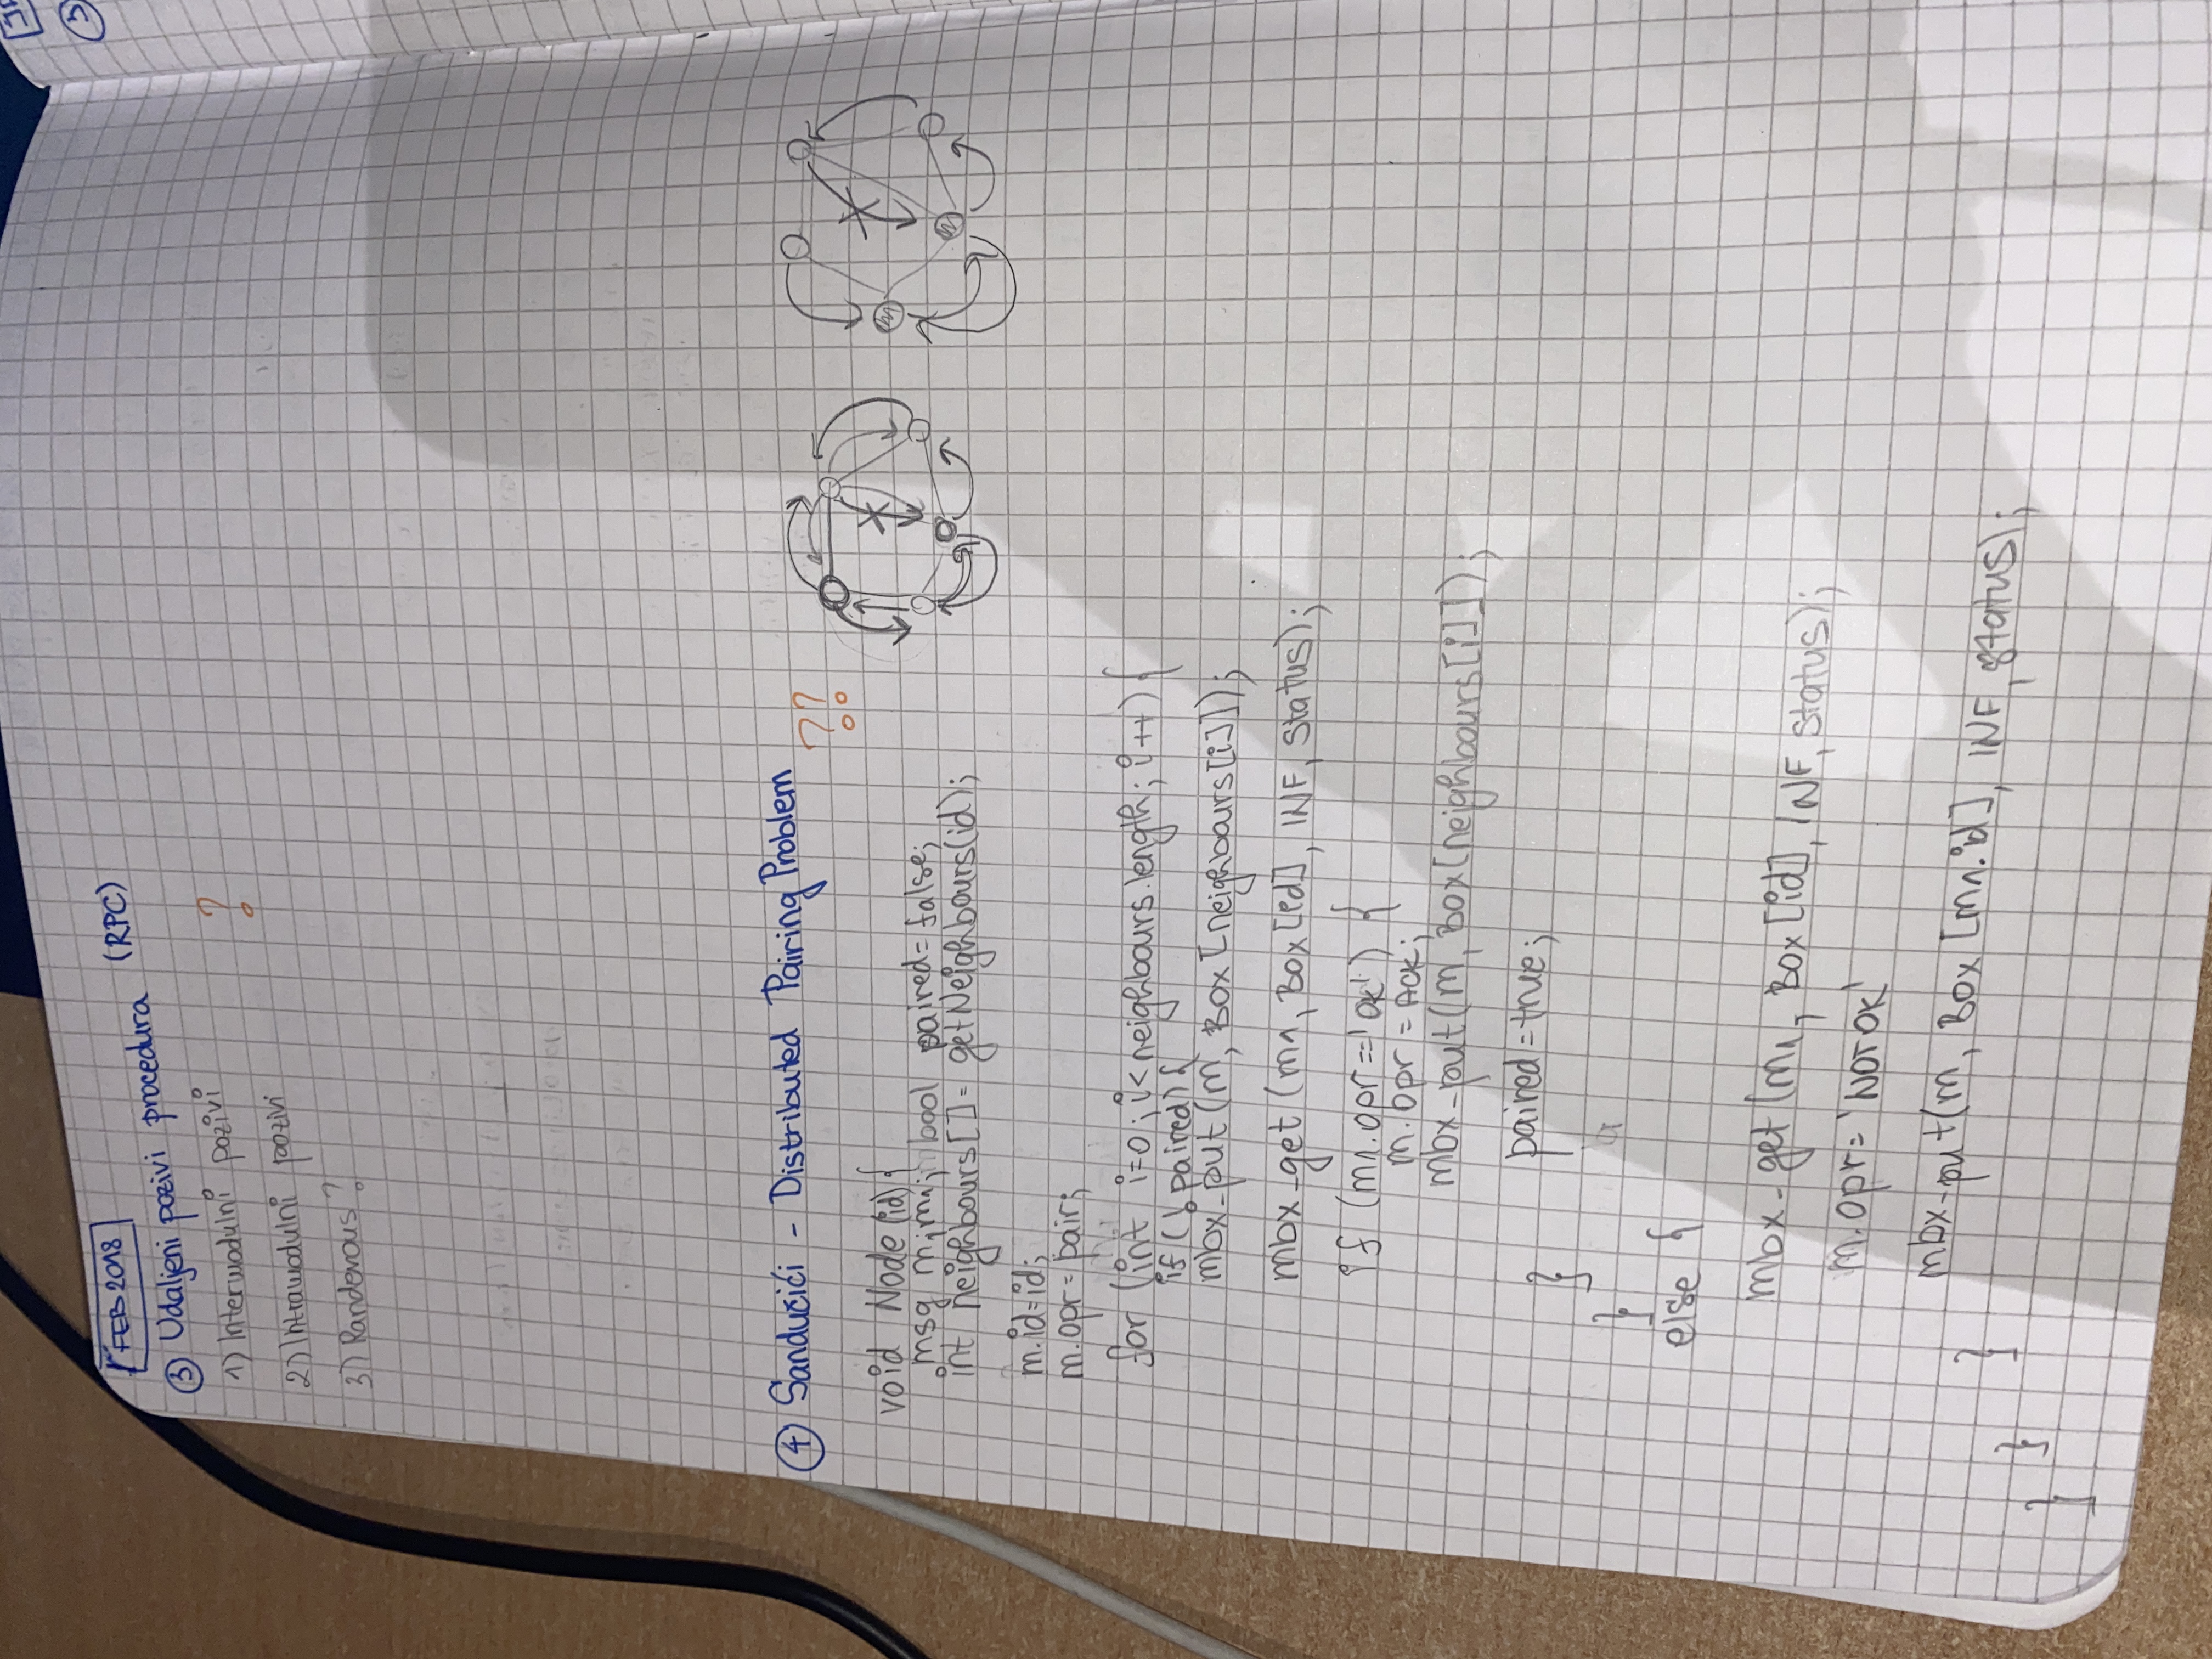 FEB 2018
③ Udaljeni pozivi procedura (RPC)
1) Intermodulni pozivi ?
2) Intramodulni pozivi
3) Randevous?
④ Sandučići - Distributed Pairing Problem ??
void Node(id){
msg m,m1; bool paired=false;
int neighbours[]= getNeighbours(id);
m.id=id;
m.opr=pair;
for (int i=0; i<neighbours.length; i++){
if (!paired){
mbx_put(m, Box[neighbours[i]]);
mbx_get(m1, Box[id], INF, status);
if (m1.opr=='ok') {
m.opr = Ack;
mbx_put(m, Box[neighbours[i]]);
paired=true;
}
}
else {
mbx_get(m1, Box[id], INF, status);
m.opr= 'NOTOK'
mbx_put(m, Box[m1.id], INF, status);
}
}
}